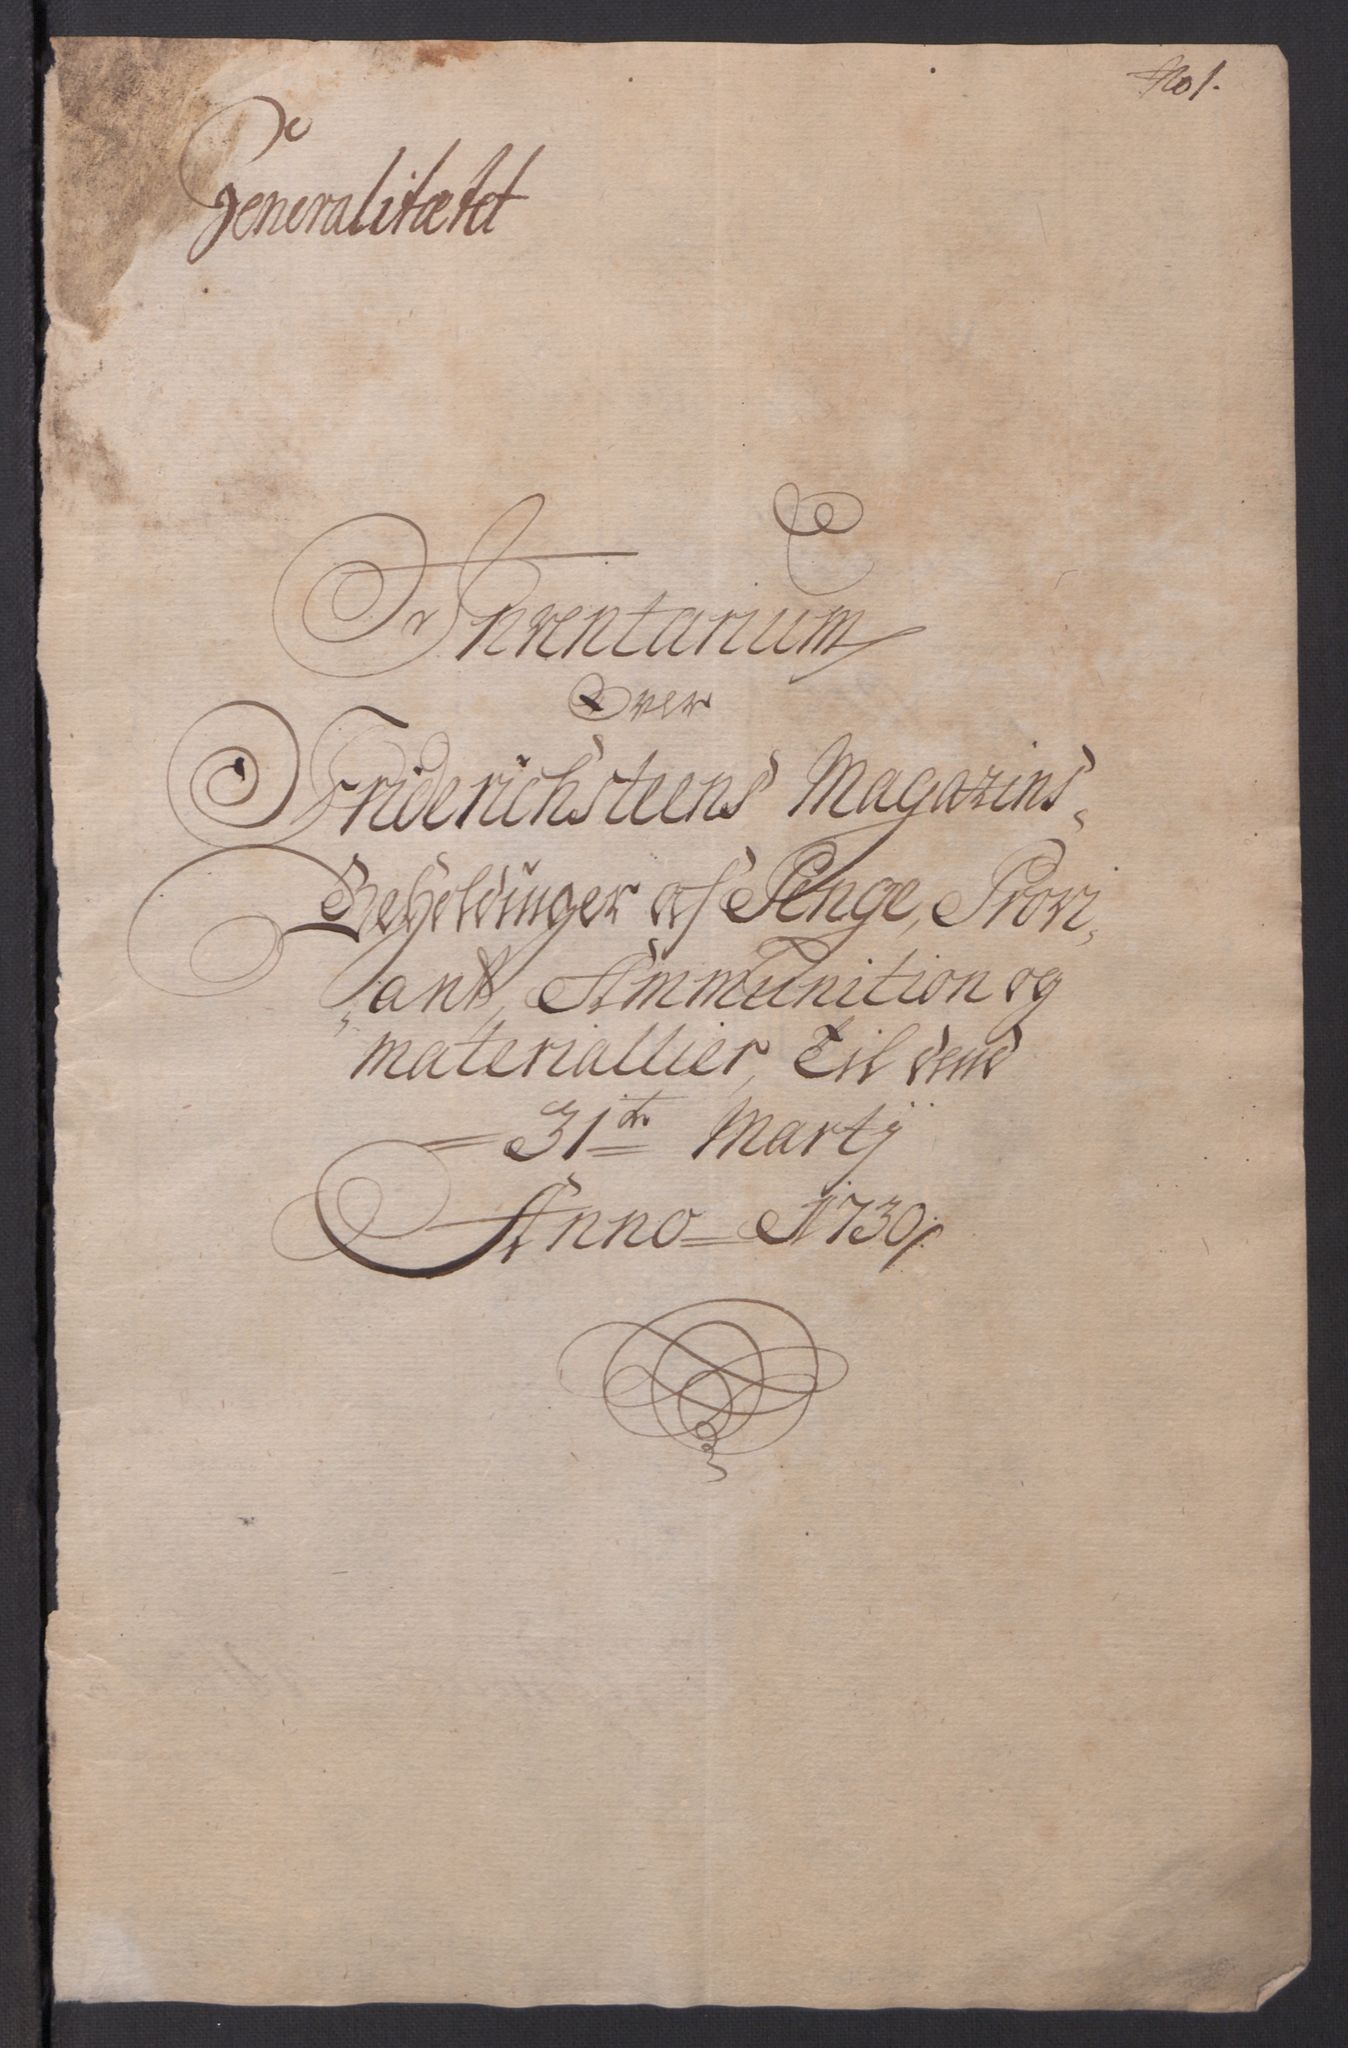 No 1.
Generalitætet
Inventarium
Over
Friderichsteens Magazins,
Beholdinger af Penge, Provi,
,,ant, Ammunition og
materiallier, Til dend
31te Martij
Anno 1730